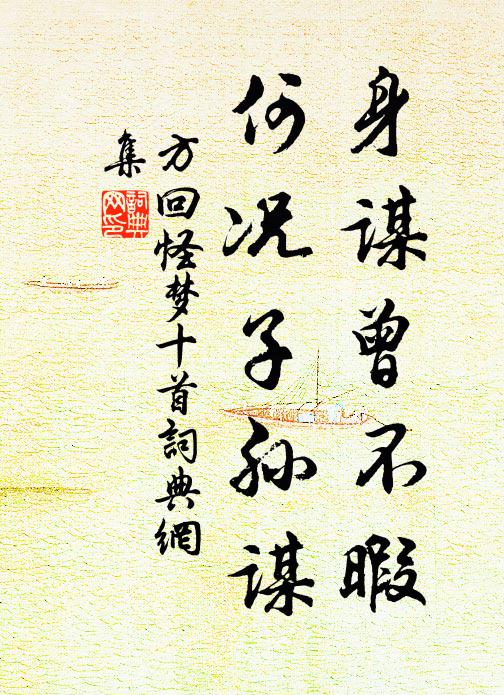 身谋曾不暇
何况子孙谋
方回怪梦十首詞典網
集
詞典網印